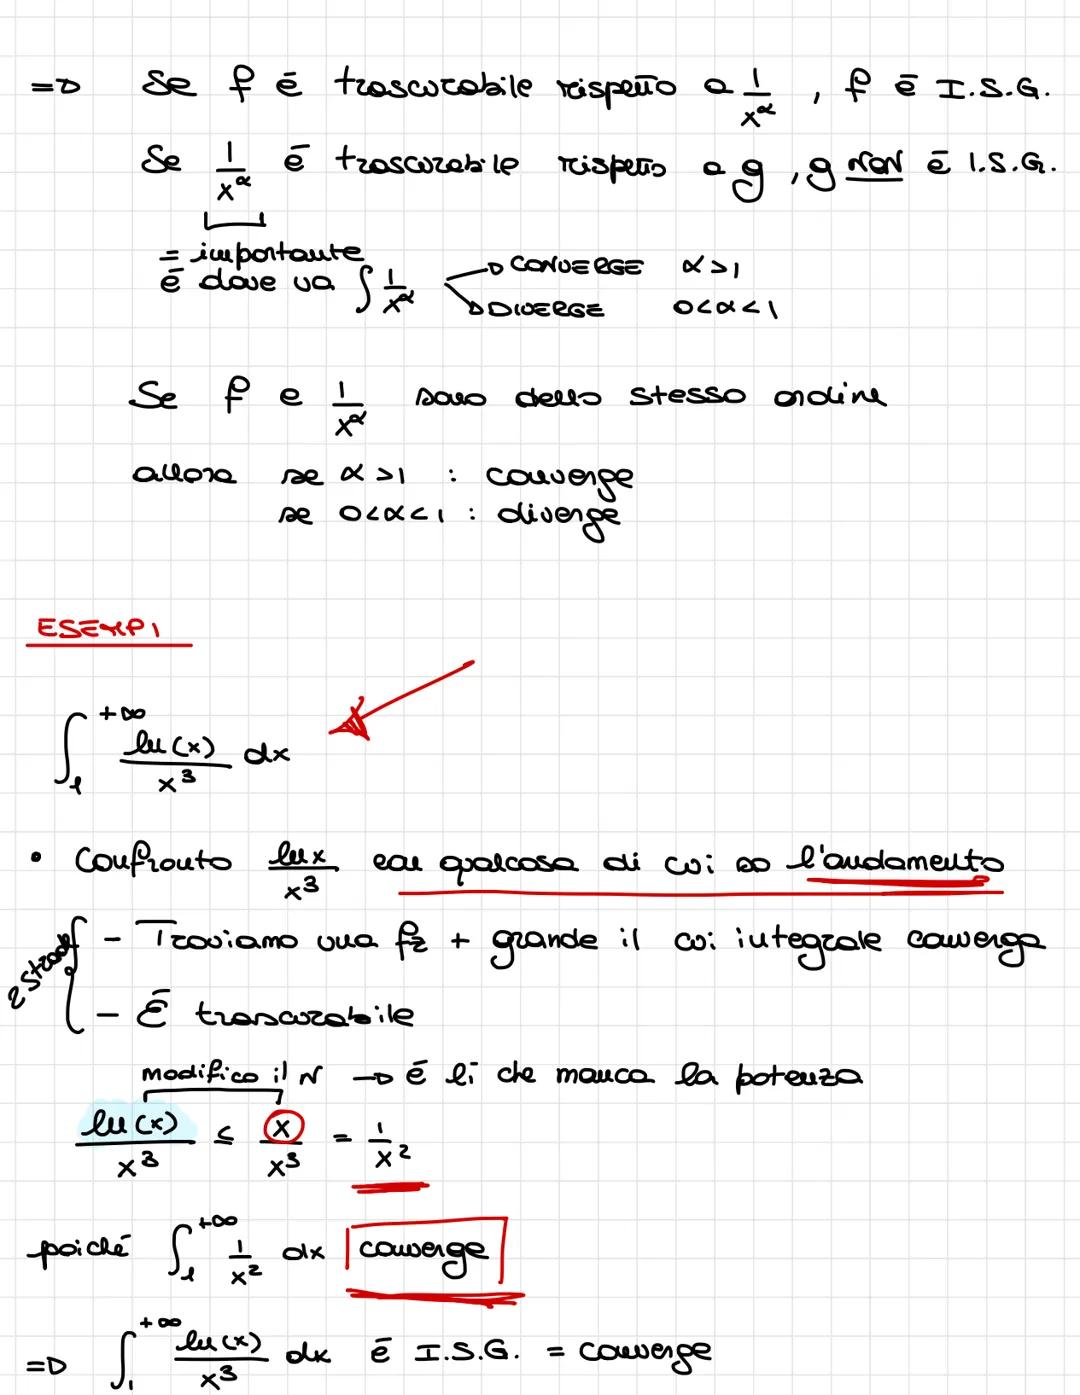 => Se f é trascurabile rispetto a 1/x^α , f é I.S.G.
Se 1/x^α é trascurabile rispetto a g , g NON é I.S.G.
= importante
é dove va ∫ 1/x^α
CONVERGE α>1
DIVERGE 0<α<1
Se f e 1/x^α sono dello stesso ordine
allora se α>1 : converge
se 0<α<1 : diverge
ESEMPI
∫_1^{+∞} ln(x)/x^3 dx
• Confronto lnx/x^3 con qualcosa di cui so l'andamento
2 strade
- Troviamo una f2 + grande il cui integrale converga
- É trascurabile
modifico il N → é lì che manca la potenza
ln(x)/x^3 ≤ x/x^3 = 1/x^2
poiché ∫_1^{+∞} 1/x^2 dx converge
=> ∫_1^{+∞} ln(x)/x^3 dx é I.S.G. = converge